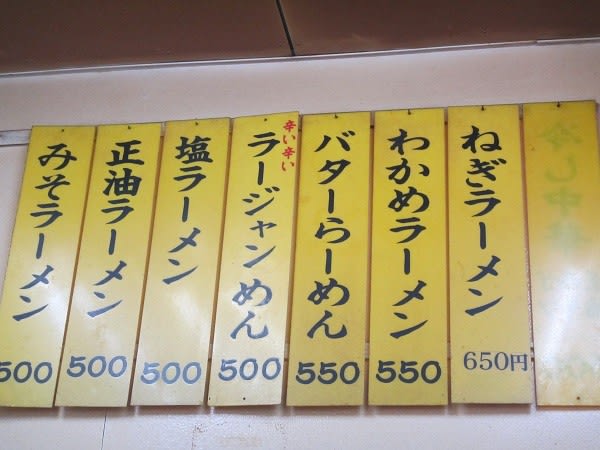 冷し中華
ねぎラーメン
650円
わかめラーメン
550
バターらーめん
550
辛い辛い
ラージャンめん
500
塩ラーメン
500
正油ラーメン
500
みそラーメン
500